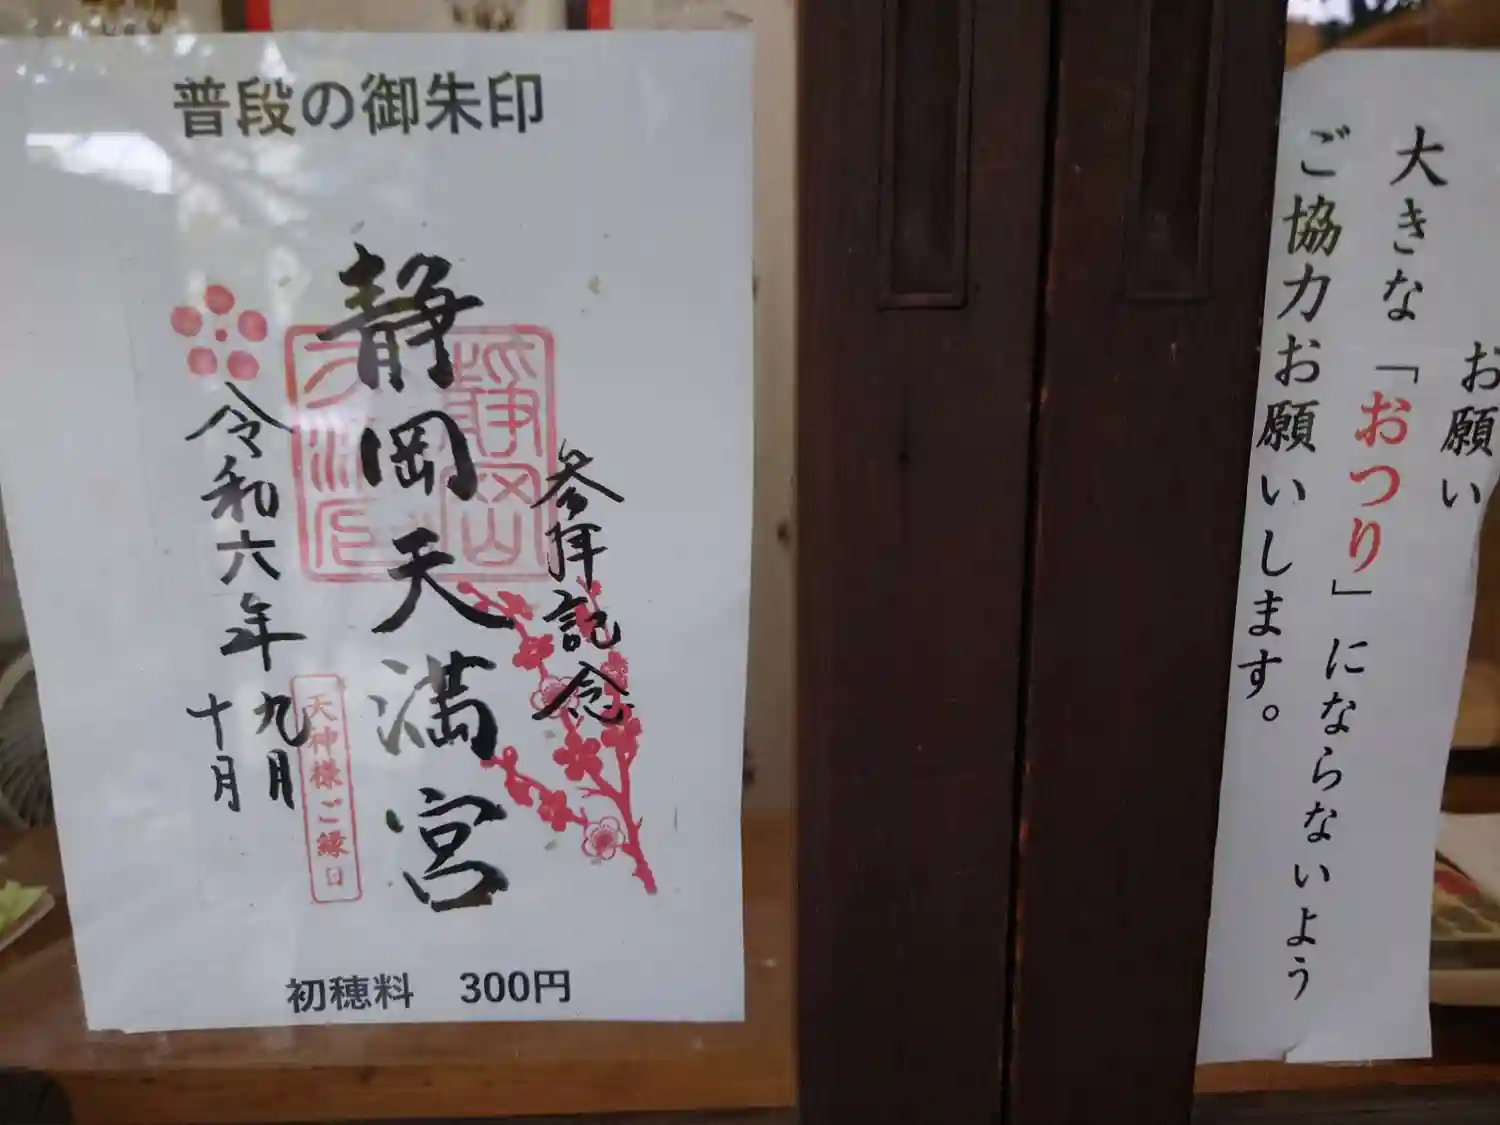 普段の御朱印
参拝記念
静岡天満宮
静岡
令和六年
九月
十月
天神様ご縁日
初穂料 300円
お願い
大きな「おつり」にならないよう
ご協力お願いします。